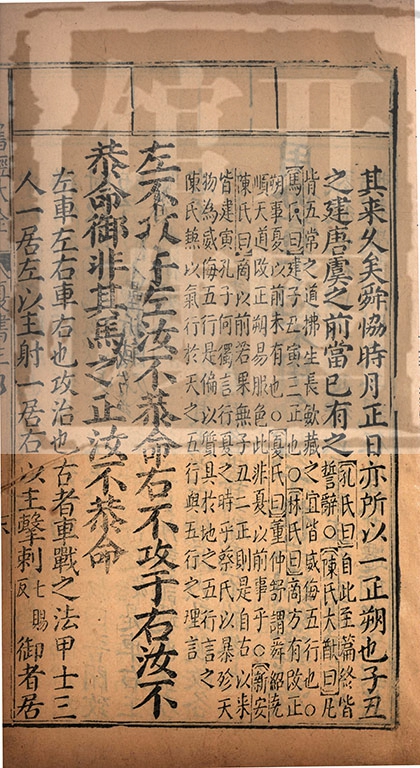 其來久矣舜恊時月正日亦所以一正朔也子丑
之建唐虞之前當已有之
孔氏曰自此至篇終皆
誓辭○陳氏大猷曰凡
皆五常之道拂生長歛藏之宜皆威侮五行也○
馬氏曰建子丑寅三正也○林氏曰商方有改正
朔事夏以前未有也○夏氏曰董仲舒謂舜紹堯
順天道改正朔易服色此非夏以前事乎○新安
陳氏曰商以前若果無子丑二正則是自古以来
皆建寅孔子何獨言行夏之時乎蔡氏以暴殄天
物為威侮五行是偏以質具於地之五行言之
陳氏兼以氣行於天之五行與五行之理言
左不攻于左汝不恭命右不攻于右汝不
恭命御非其馬之正汝不恭命
左車左右車右也攻治也古者車戰之法甲士三
人一居左以主射一居右以主擊刺七賜反御者居